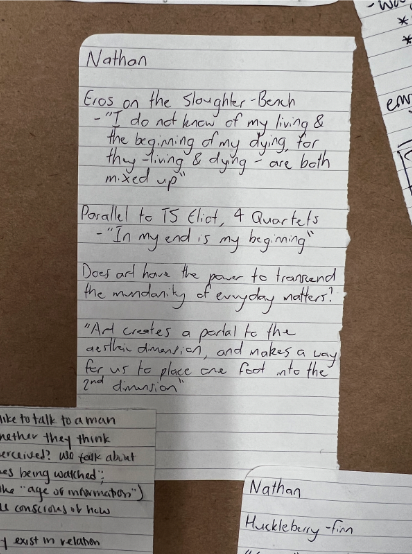 Nathan
Eros on the Slaughter-Bench
- "I do not know of my living &
the beginning of my dying, for
they - living & dying - are both
mixed up"
Parallel to TS Eliot, 4 Quartets
- "In my end is my beginning"
Does art have the power to transcend
the mundanity of everyday matters?
"Art creates a portal to the
aesthetic dimension, and makes a way
for us to place one foot into the
2nd dimension"
like to talk to a man
whether they think
perceived? We talk about
being watched";
the "age of information")
conscious of how
exist in relation
Nathan
Huckleberry - Finn